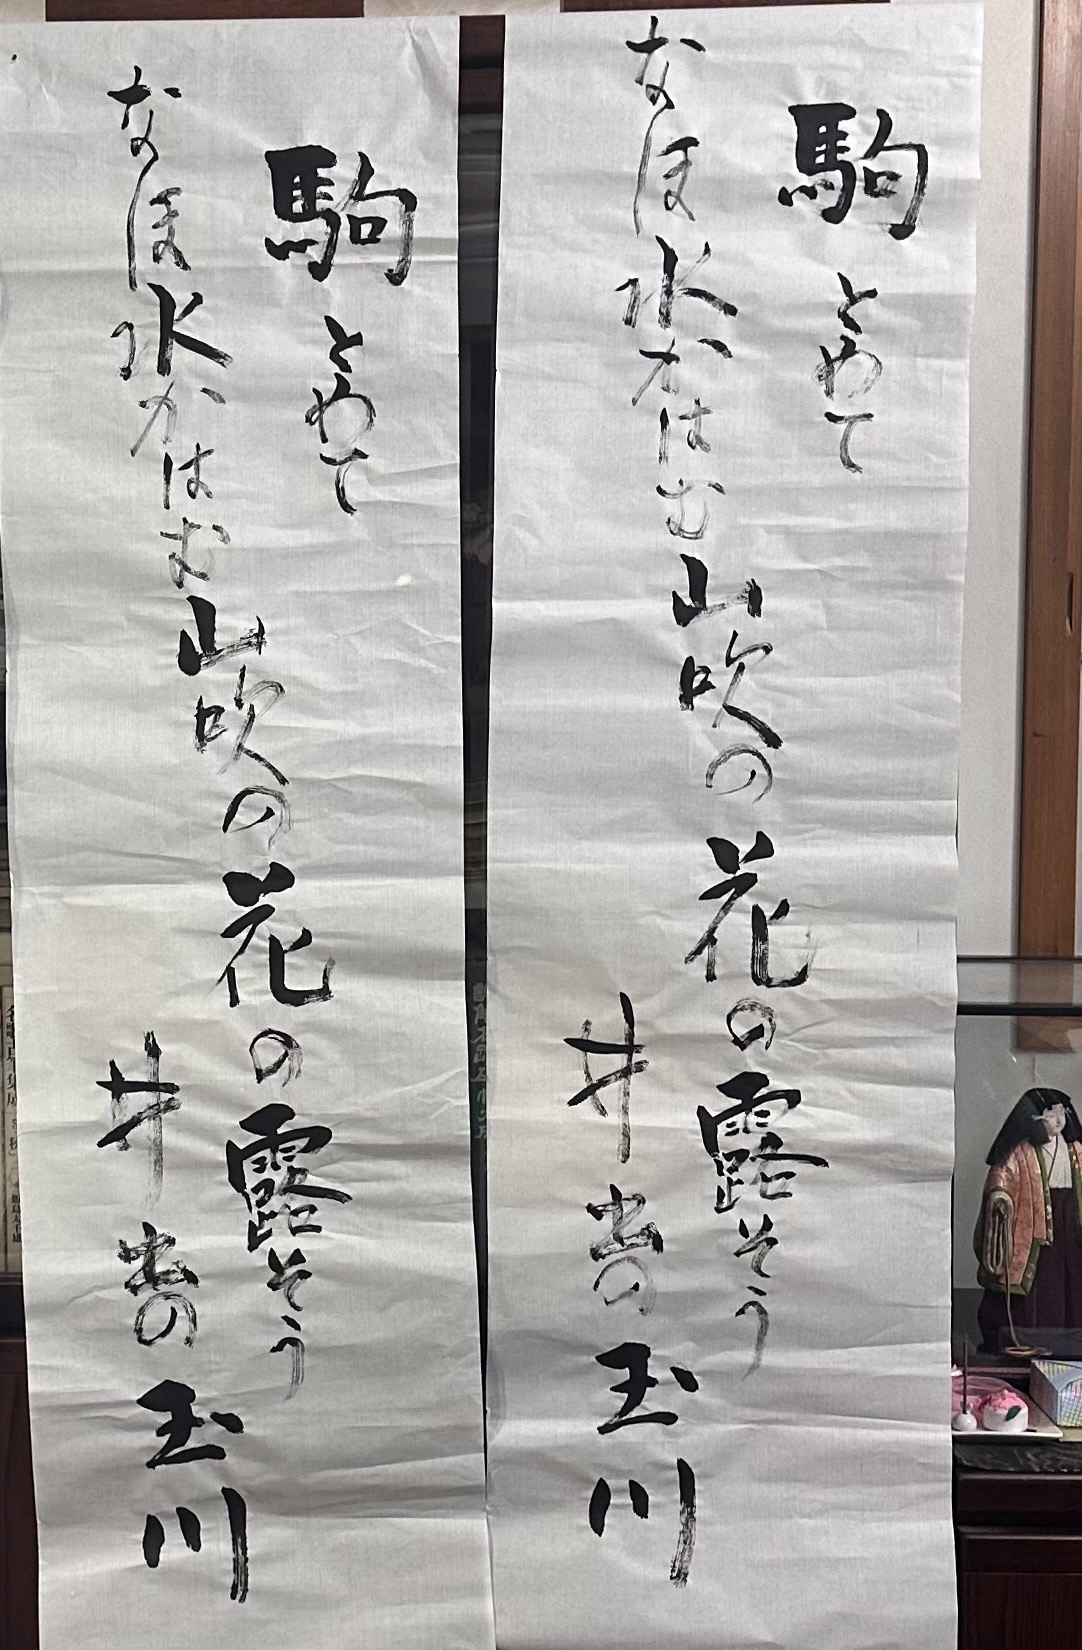 駒とめて
なほ水かはむ山吹の花の露そう
井出の玉川
駒とめて
なほ水かはむ山吹の花の露そう
井出の玉川